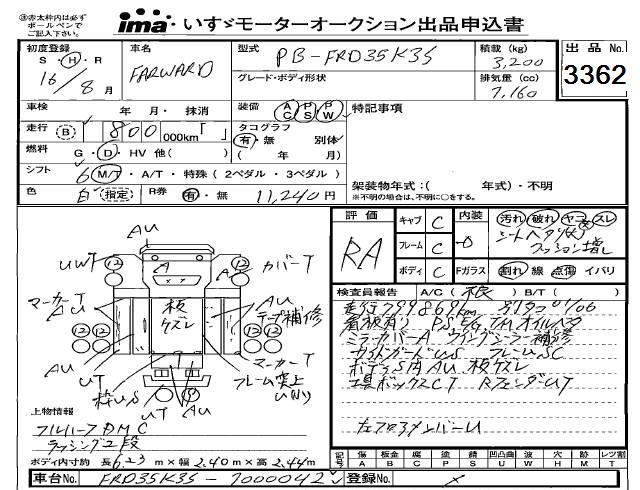 ※赤太枠内は必ず
ボールペンで
ご記入下さい。
ima いすゞモーターオークション出品申込書
初度登録
S・H・R
16/8月
車名
FARWARD
型式
PB-FRD35K3S
グレード・ボディ形状
積載 (kg)
3,200
排気量 (cc)
7,160
出品 No.
3362
車検 年 月・抹消
装備 AC PS PW
特記事項
走行 (B) 800 000km「 」
タコグラフ
有・無 別体
( 年 月)
燃料 G・D・HV 他( )
シフト 6 M/T・A/T・特殊 (2ペダル・3ペダル)
架装物年式:( 年式)・不明
※不明の場合は、不明に○をする。
色 白 (指定) R券 有・無 11,240円
評価 RA
キャブ C
フレーム C
ボディ C
内装 D
汚れ 破れ ヤコ スレ
シートヘタリ(大)
クッション増し
Fガラス 割れ 線 点傷 イバリ
検査員報告 A/C (根) B/T ( )
走行799869km 別タコ01/06
看板有り PS,EG,TM,オイルヘタ
ミラーカバーA ウイングシーラー補修
サイドガードUS フレームSC
ボディS角AU 板ケズレ
工具ボックスCT RフェンダーUT
左フロアメンバーU
AU
UWT
カバーT
12
12
A
A
マーカーT
AU
板
ケズレ
AU
テープ補修
12 12
12 12
マーカーT
UT
枠US
UT
AU
フレーム突上
UWり
上物情報
フルハーフDMC
ラッシング2段
ボディ内寸約 長6.23m×幅2.40m×高2.44m
記号 傷A 板金B 腐C 塗P 錆S 凹凸曲U 波W 穴H 跡M レツ割T
車台No. FRD35K3S-7000042
登録No. ×